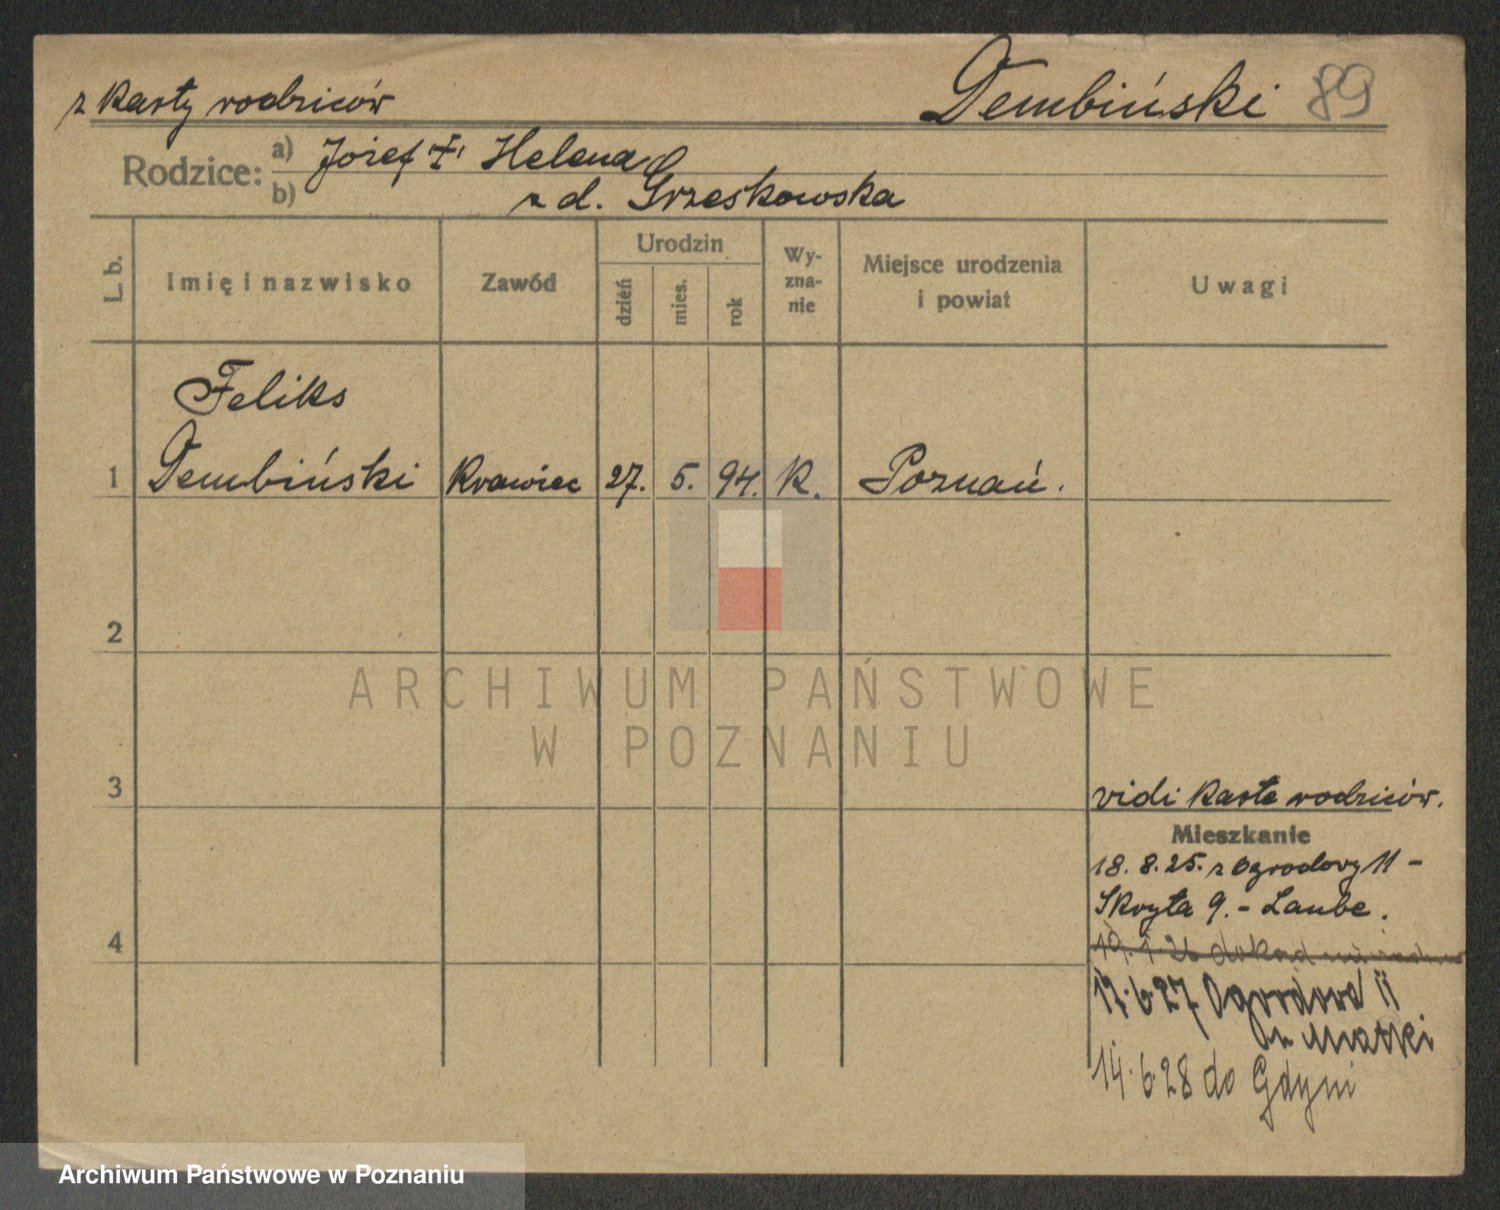 z karty rodziców
Dembiński 89
Rodzice: a) Józef i Helena
b) z d. Grześkowska
L. b.
Imię i nazwisko
Zawód
Urodzin
dzień
mies.
rok
Wy-
zna-
nie
Miejsce urodzenia
i powiat
Uwagi
Feliks
1 Dembiński Krawiec 27. 5. 94. K. Poznań.
2
ARCHIWUM PAŃSTWOWE
W POZNANIU
3
vidi karta rodziców.
Mieszkanie
18. 8. 25. z Ogrodowy 11 -
Skryta 9. - Laube.
4
19. 1. 26 dokąd
12.6.27 Ogrodowa 11
matki
14.6 28 do Gdyni
Archiwum Państwowe w Poznaniu